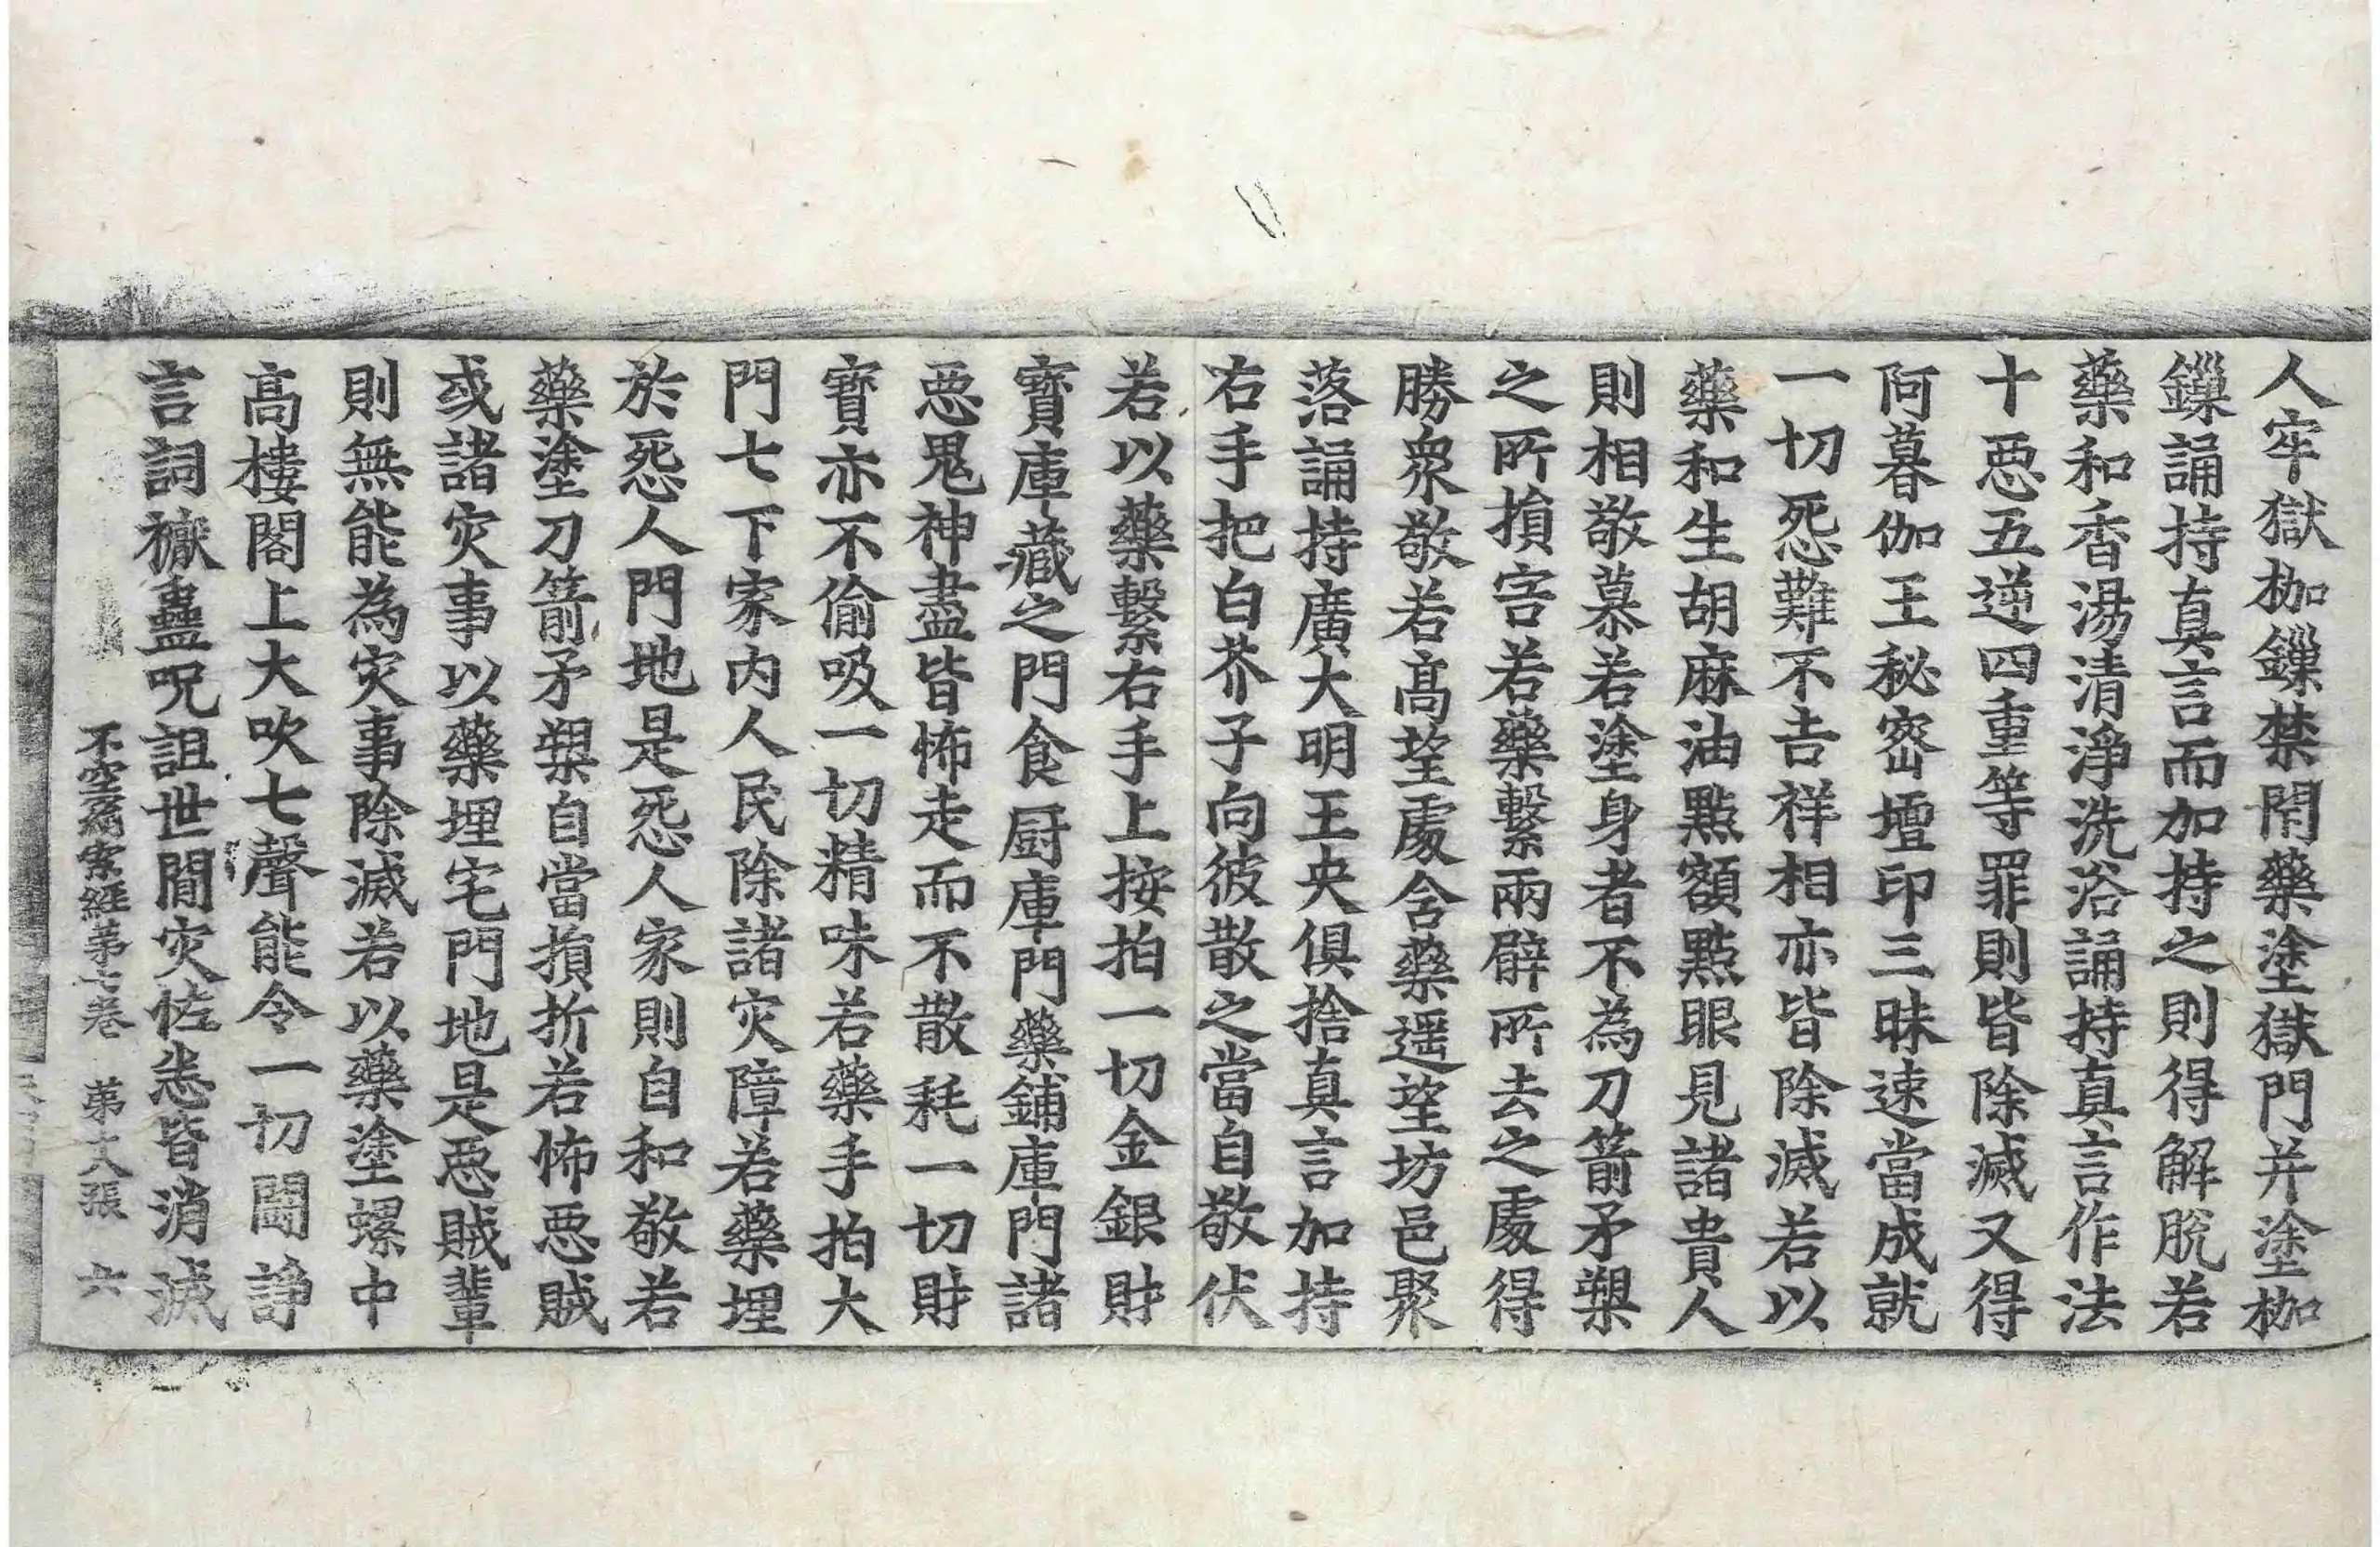 人牢獄枷鏁禁閇藥塗獄門并塗枷
鏁誦持真言而加持之則得解脫若
藥和香湯清淨洗浴誦持真言作法
十惡五逆四重等罪則皆除滅又得
阿暮伽王秘密壇印三昧速當成就
一切惡難不吉祥相亦皆除滅若以
藥和生胡麻油點額點眼見諸貴人
則相敬慕若塗身者不為刀箭矛槊
之所損害若藥繫兩臂所去之處得
勝衆敬若高望處含藥遥望坊邑聚
落誦持廣大明王央俱捨真言加持
右手把白芥子向彼散之當自敬伏
若以藥繫右手上按拍一切金銀財
寶庫藏之門食厨庫門藥鋪庫門諸
惡鬼神盡皆怖走而不散耗一切財
寶亦不偷吸一切精味若藥手拍大
門七下家內人民除諸灾障若藥埋
於惡人門地是惡人家則自和敬若
藥塗刀箭矛槊自當損折若怖惡賊
或諸灾事以藥埋宅門地是惡賊輩
則無能為灾事除滅若以藥塗螺中
高樓閣上大吹七聲能令一切鬪諍
言詞獤蠱呪詛世間灾怪恙皆消滅
不空羂索經第七卷　第十八張　六